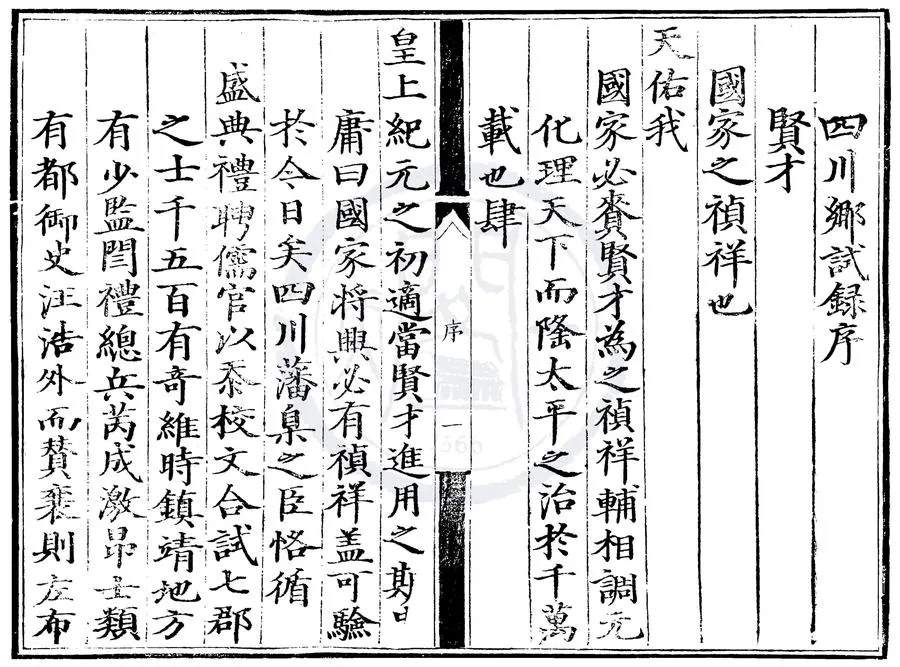 四川鄉試録序
賢才
國家之禎祥也
天佑我
國家必賚賢才為之禎祥輔相調元
化理天下而隆太平之治於千萬
載也肆
序
一
皇上紀元之初適當賢才進用之期曰
庸曰國家將興必有禎祥盖可驗
於今日矣四川藩臬之臣恪循
盛典禮聘儒官以忝校文合試七郡
之士千五百有奇維時鎮靖地方
有少監閻禮總兵芮成激昂士類
有都御史汪浩外而賛襄則左布